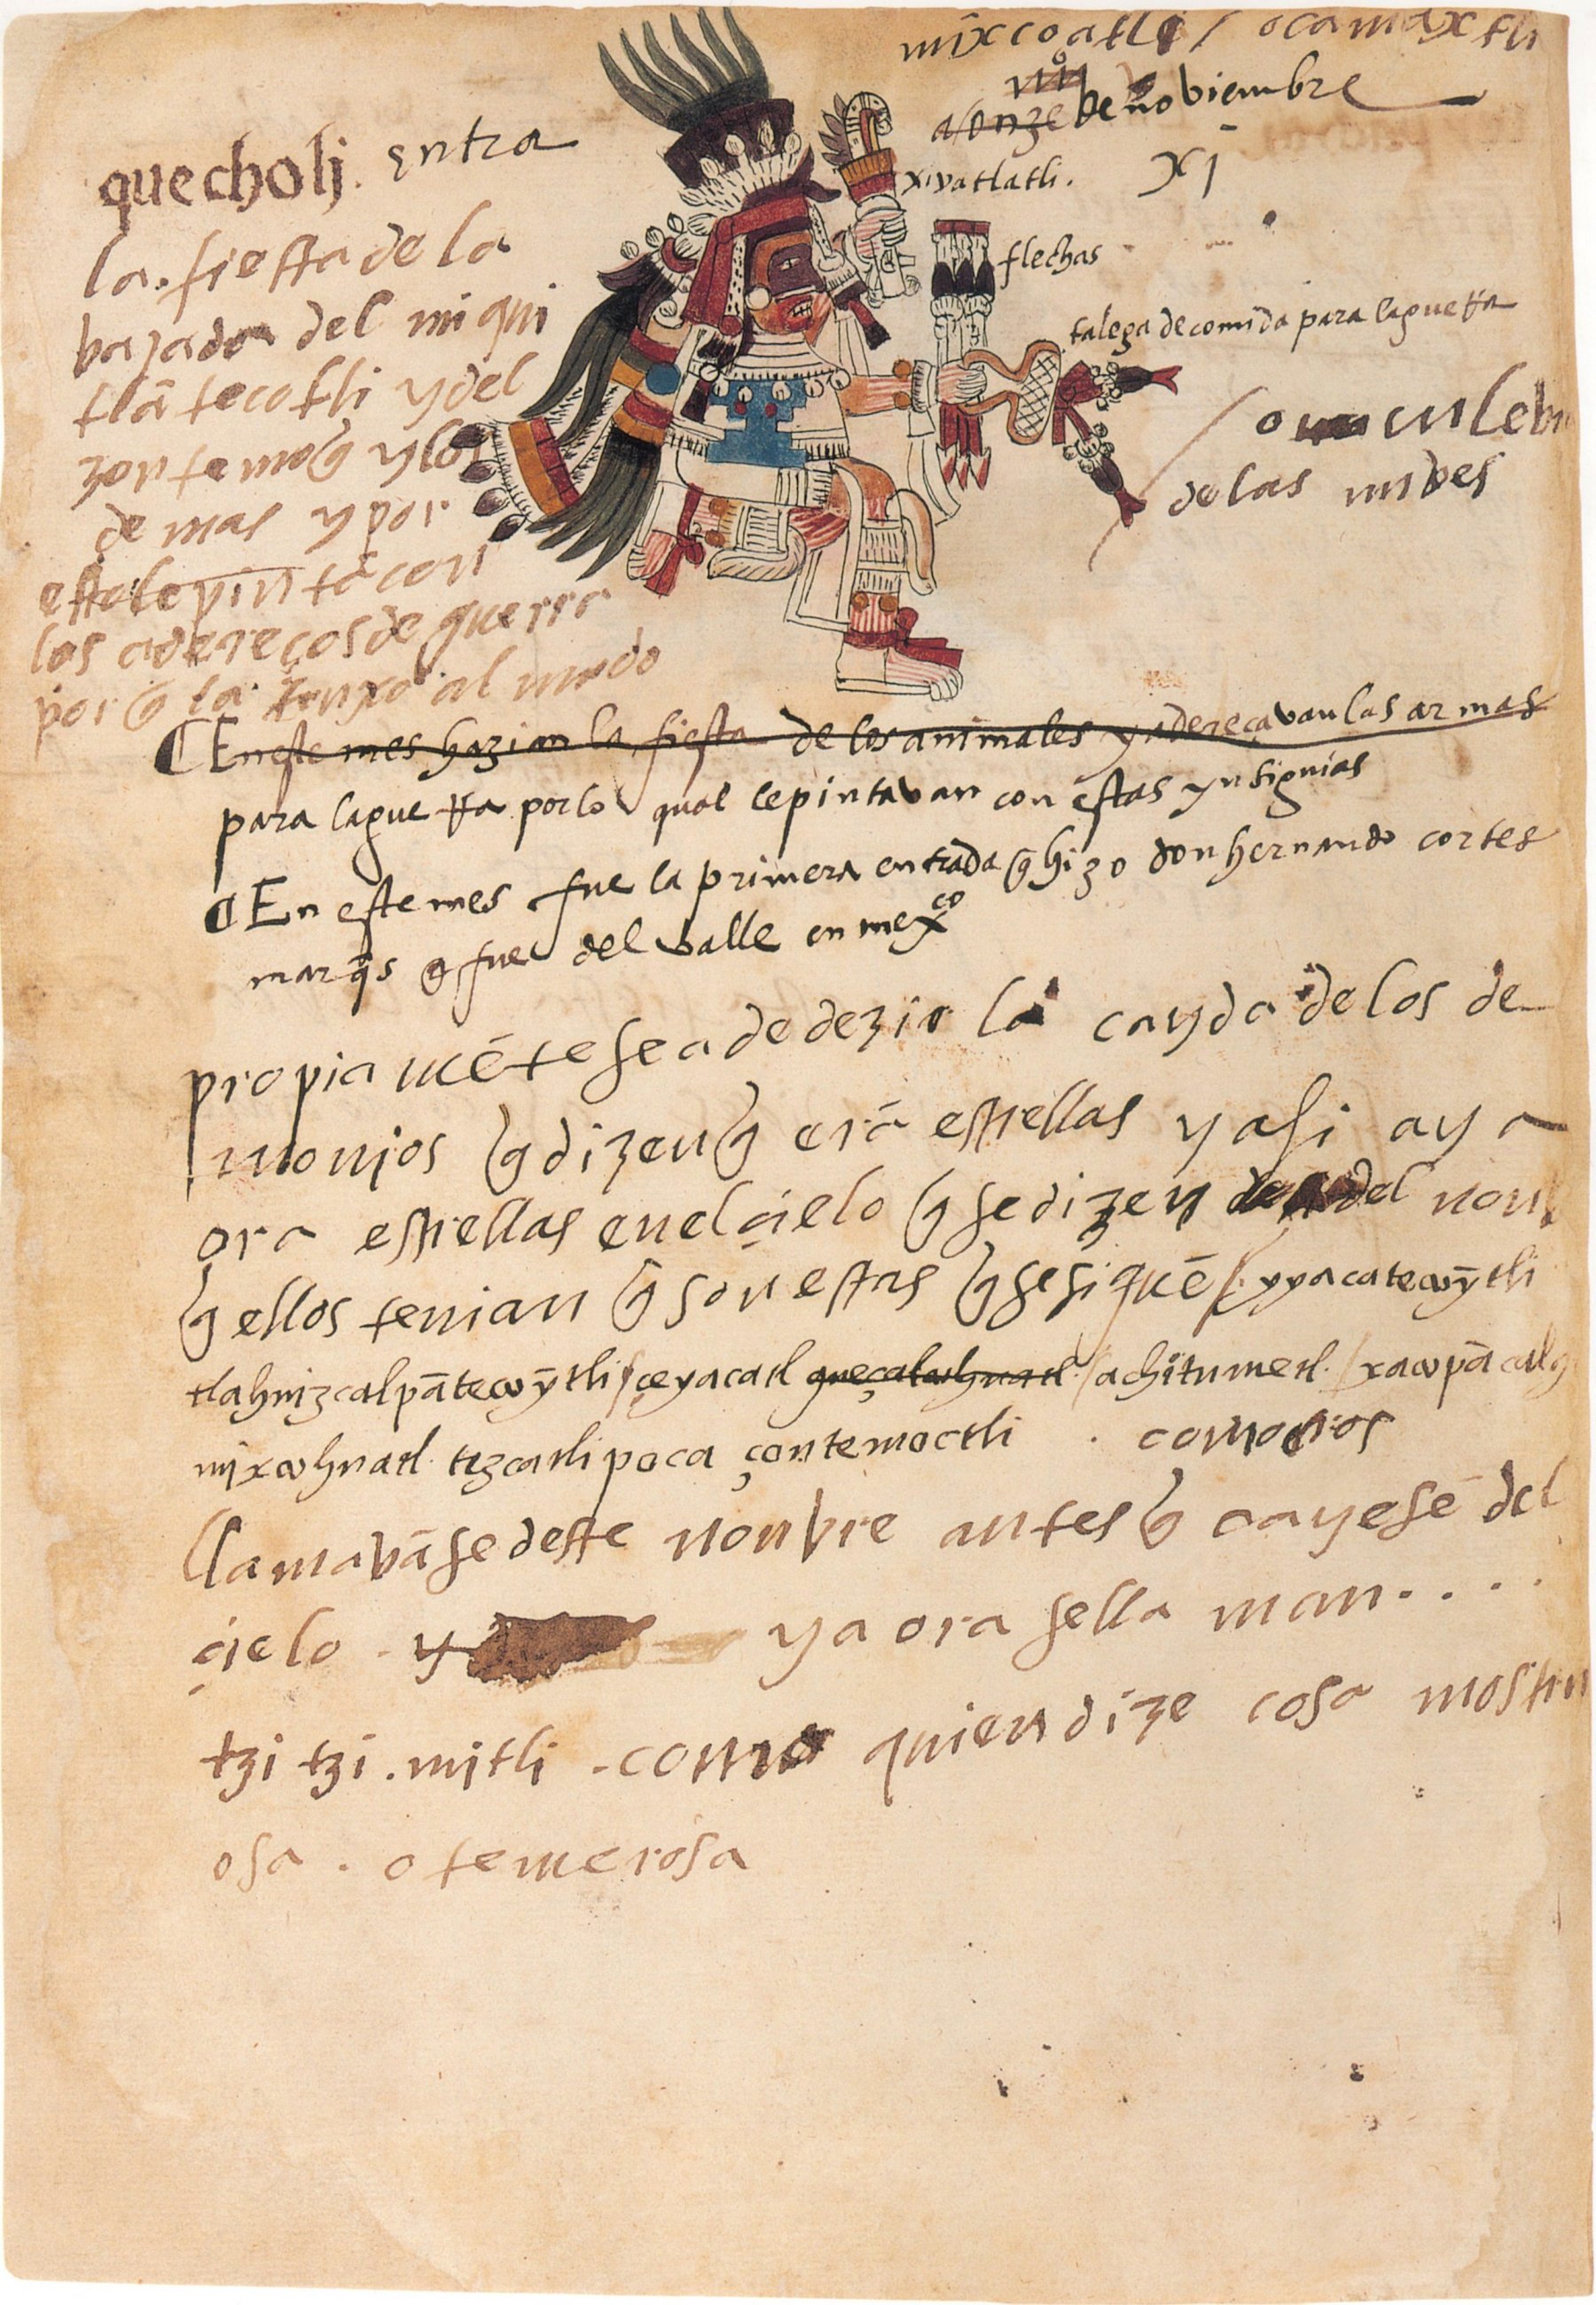 mixcoatle / o camaxtli
a onze de noviembre
quecholi. entra
xiuatlatli. xj
flechas
talega de comida para la guerra
la. fiesta de la
bajada del miqui
tlātecotli y del
zontemoq̃ y los
de mas y por
esto le pintā con
los adereços de guerra
por q̃ la truxo al mūdo
/ o culeb
de las nubes
¶ En este mes hazian la fiesta de los animales y adereçavan las armas
para la guerra por lo qual le pintavan con estas ynsignias
¶ En este mes fue la primera entrada q̃ hizo don hernando cortes
marq̃s q̃ fue del valle en mexco
propia mēte se a de dezir la cayda de los de
monios q̃ dizen q̃ erā estrellas y asi ay a
ora estrellas en el çielo q̃ se dizen del nonb
q̃ ellos tenian q̃ son estas q̃ se siguē / yyacatecuȳtli
tlahuizcalpātecuȳtli / çe yacatl queçalcohuatl / achitumetl. / xacupācalq
mixcohuatl tezcatlipoca çontemoctli . como dios
llamavāse deste nonbre antes q̃ cayesē del
çielo . y ya ora se lla man . . . .
tzi tzi . mitli . como quien dize cosa mostru
osa . o temerosa